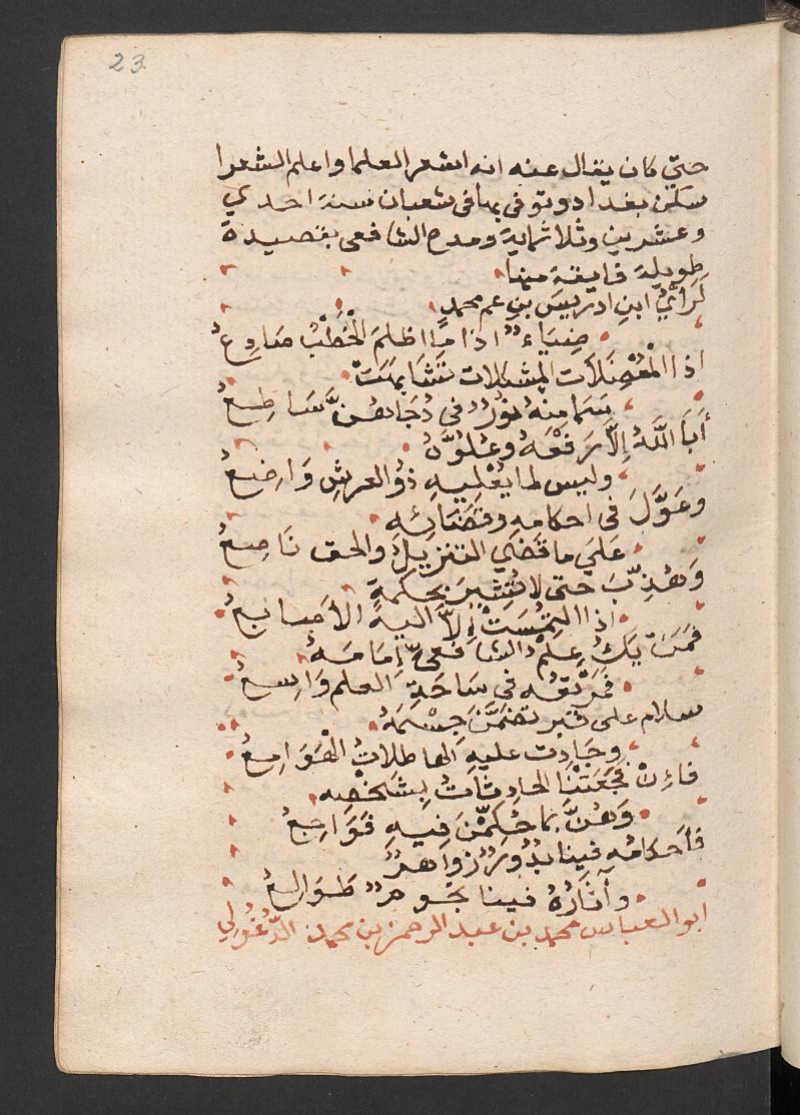 23
حتي كان يقال عنه انه اشعر العلما واعلم الشعرا
سكن بغداد وتوفى بها فى شعبان سنة احدي
وعشرين وثلاثماية ومدح الشافعى بقصيدة
طويلة فايقة منها
لَرَأيُ ابنِ ادريسَ بنِ عم محمدٍ
ضِيَاءٌ اذا مَا اظلمَ الْخَطْبُ صَادِعُ
اذا المُعْضِلَات المشكلات تَشَابَهَتْ
سَمَا مِنهُ نُورٌ فى دُجَاهُنَّ سَاطِعُ
أَبَا اللَّهُ إِلَّا رَفْعَهُ وعُلُوَّهُ
وليس لما يُعْلِيهِ ذُو العرشِ وَاضِعُ
وعَوَّلَ فى احكامهِ وقضَائِهِ
عَلَي ما قَضَي التنزيلُ والحق نَاصِعُ
وَهُذِّبَ حتى لا تُشِيرَ بحكمةٍ
اذا الْتُمِسَتْ إِلاَّ اليهِ الأَصابِعُ
فَمَنْ يَكُ عِلمُ الشافعىِّ إِمَامَهُ
فَمَرْتَعُه فى سَاحَةِ العلم وَاسِعُ
سلام على قبر تضمَّنَ جِسْمَهُ
وجَادت عليهِ الهاطلاتُ الهَوَامِعُ
فإِنْ فَجَعَتْنَا الحادِثَاتُ بِشَخْصِه
وَهُنَّ بما حُكِمْنَ فِيهِ فَوَاجِعُ
فأَحكامُه فينا بُدُورٌ زواهرٌ
وآثَارُهُ فينا نجُومٌ طَوَالِعُ
ابو العباس محمد بن عبد الرحمن بن محمد الدَّغُولي